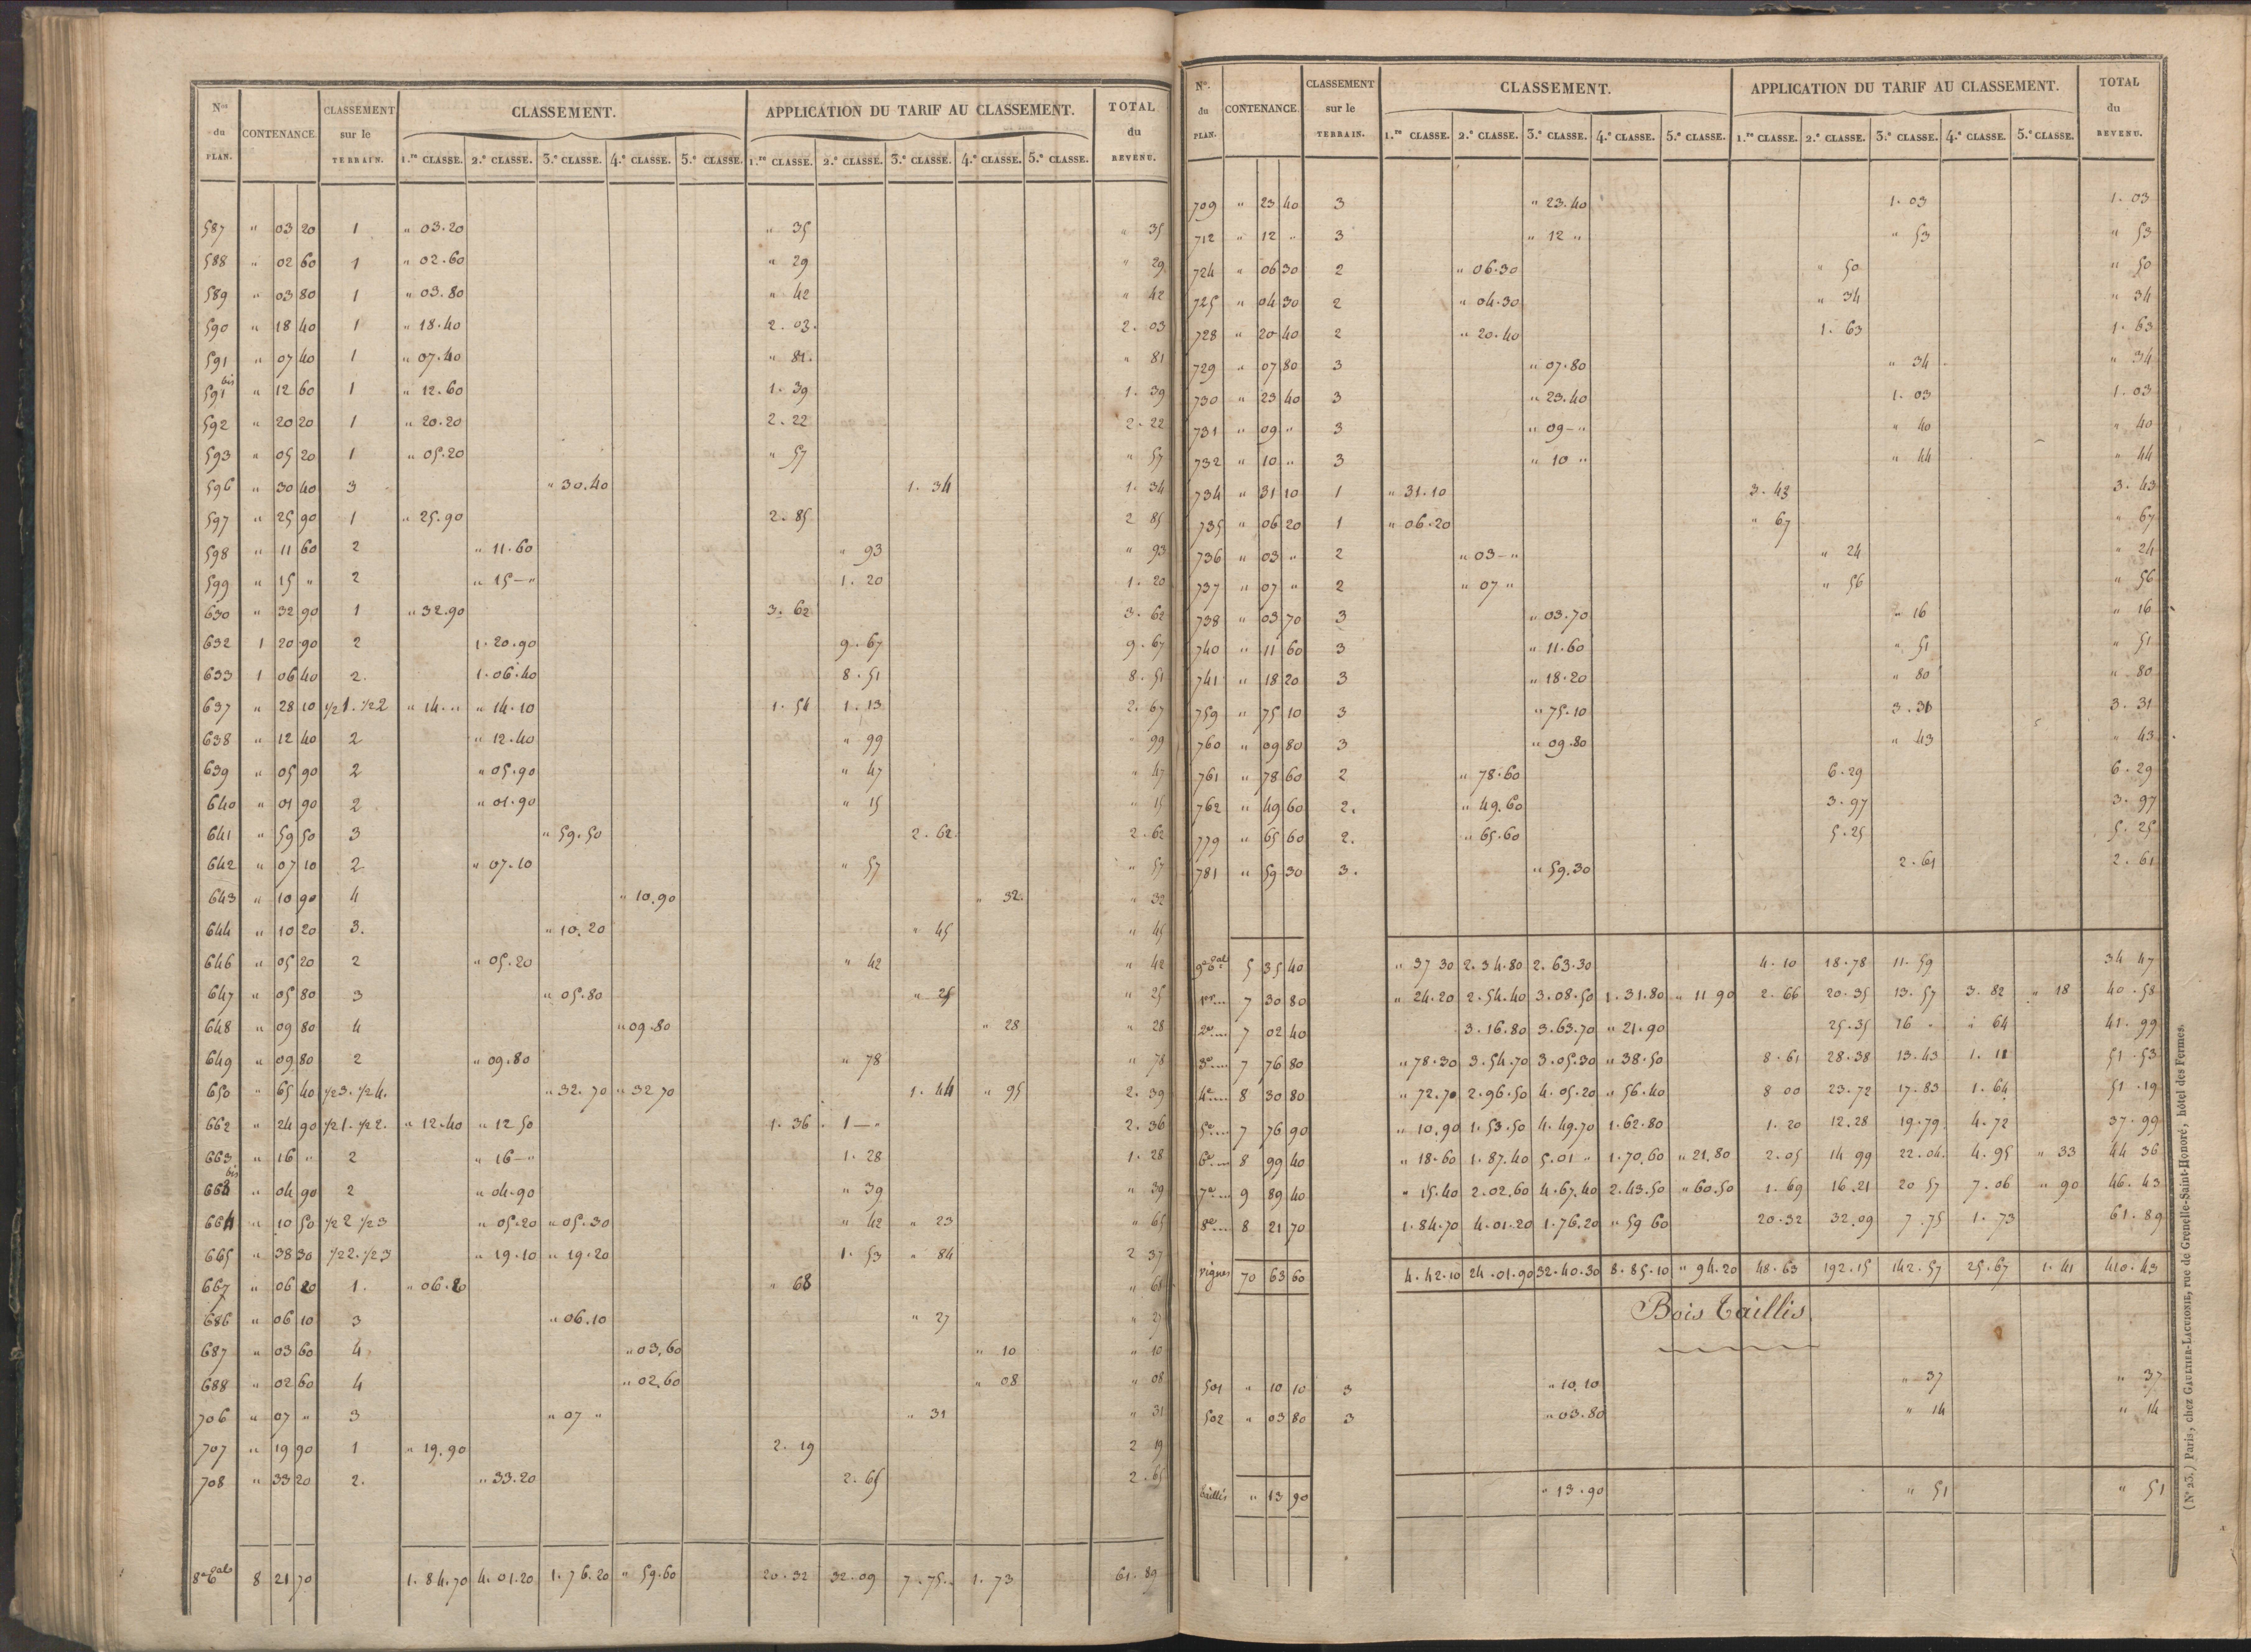 Nos du PLAN. CONTENANCE. CLASSEMENT sur le TERRAIN. CLASSEMENT. APPLICATION DU TARIF AU CLASSEMENT. TOTAL du REVENU.
1.re CLASSE. 2.e CLASSE. 3.e CLASSE. 4.e CLASSE. 5.e CLASSE. 1.re CLASSE. 2.e CLASSE. 3.e CLASSE. 4.e CLASSE. 5.e CLASSE.
587 " 03 20 1 " 03.20 " 35 " 35
588 " 02 60 1 " 02.60 " 29 " 29
589 " 03 80 1 " 03.80 " 42 " 42
590 " 18 40 1 " 18.40 2.03. 2.03
591 " 07 40 1 " 07.40 " 81. " 81
591 bis " 12 60 1 " 12.60 1.39 1.39
592 " 20 20 1 " 20.20 2.22 2.22
593 " 05 20 1 " 05.20 " 57 " 57
596 " 30 40 3 " 30.40 1.34 1.34
597 " 25 90 1 " 25.90 2.85 2 85
598 " 11 60 2 " 11.60 " 93 " 93
599 " 15 " 2 " 15 — " 1.20 1.20
630 " 32 90 1 " 32.90 3.62 3.62
632 1 20 90 2 1.20.90 9.67 9.67
633 1 06 40 2. 1.06.40 8.51 8.51
637 " 28 10 1/2 1. 1/2 2 " 14. " " 14.10 1.54 1.13 2.67
638 " 12 40 2 " 12.40 " 99 " 99
639 " 05 90 2 " 05.90 " 47 " 47
640 " 01 90 2 " 01.90 " 15 " 15
641 " 59 50 3 " 59.50 2.62. 2.62
642 " 07 10 2. " 07.10 " 57 " 57
643 " 10 90 4 " 10.90 " 32. " 32
644 " 10 20 3. " 10.20 " 45 " 45
646 " 05 20 2 " 05.20 " 42 " 42
647 " 05 80 3 " 05.80 " 25 " 25
648 " 09 80 4 " 09.80 " 28 " 28
649 " 09 80 2 " 09.80 " 78 " 78
650 " 65 40 1/2 3. 1/2 4. " 32.70 " 32 70 1.44 " 95 2.39
662 " 24 90 1/2 1. 1/2 2. " 12.40 " 12 50 1.36 1 — " 2.36
663 " 16 " 2 " 16 — " 1.28 1.28
663 bis " 04 90 2 " 04.90 " 39 " 39
664 " 10 50 1/2 2 1/2 3 " 05.20 " 05.30 " 42 " 23 " 65
665 " 38 30 1/2 2. 1/2 3 " 19.10 " 19.20 1.53 " 84 2 37
667 " 06 20 1. " 06.20 " 68 " 68
686 " 06 10 3 " 06.10 " 27 " 27
687 " 03 60 4 " 03.60 " 10 " 10
688 " 02 60 4 " 02.60 " 08 " 08
706 " 07 " 3 " 07 " " 31 " 31
707 " 19 90 1 " 19.90 2.19 2 19
708 " 33 20 2. " 33.20 2.65 2.65
8e tal 8 21 70 1.84.70 4.01.20 1.76.20 " 59.60 20.32 32.09 7.75. 1.73 61.89
Nos. du PLAN. CONTENANCE. CLASSEMENT sur le TERRAIN. CLASSEMENT. APPLICATION DU TARIF AU CLASSEMENT. TOTAL du REVENU.
1.re CLASSE. 2.e CLASSE. 3.e CLASSE. 4.e CLASSE. 5.e CLASSE. 1.re CLASSE. 2.e CLASSE. 3.e CLASSE. 4.e CLASSE. 5.e CLASSE.
709 " 23 40 3 " 23.40 1.03 1.03
712 " 12 " 3 " 12 " " 53 " 53
724 " 06 30 2 " 06.30 " 50 " 50
725 " 04 30 2 " 04.30 " 34 " 34
728 " 20 40 2 " 20.40 1.63 1.63
729 " 07 80 3 " 07.80 " 34 " 34
730 " 23 40 3 " 23.40 1.03 1.03
731 " 09 " 3 " 09 — " " 40 " 40
732 " 10 " 3 " 10 " " 44 " 44
734 " 31 10 1 " 31.10 3.43 3.43
735 " 06 20 1 " 06.20 " 67 " 67
736 " 03 " 2 " 03 — " " 24 " 24
737 " 07 " 2 " 07 " " 56 " 56
738 " 03 70 3 " 03.70 " 16 " 16
740 " 11 60 3 " 11.60 " 51 " 51
741 " 18 20 3 " 18.20 " 80 " 80
759 " 75 10 3 " 75.10 3.31 3.31
760 " 09 80 3 " 09.80 " 43 " 43
761 " 78 60 2 " 78.60 6.29 6.29
762 " 49 60 2. " 49.60 3.97 3.97
779 " 65 60 2. " 65.60 5.25 5.25
781 " 59 30 3. " 59.30 2.61 2.61
9e tal 5 35 40 " 37 30 2.34.80 2.63.30 4.10 18.78 11.59 34 47
1er 7 30 80 " 24.20 2.54.40 3.08.50 1.31.80 " 11 90 2.66 20.35 13.57 3.82 " 18 40.58
2e 7 02 40 3.16.80 3.63.70 " 21.90 25.35 16 " " 64 41.99
3e 7 76 80 " 78.30 3.54.70 3.05.30 " 38.50 8.61 28.38 13.43 1.11 51.53
4e 8 30 80 " 72.70 2.96.50 4.05.20 " 56.40 8 00 23.72 17.83 1.64 51.19
5e 7 76 90 " 10.90 1.53.50 4.49.70 1.62.80 1.20 12.28 19.79. 4.72 37.99
6e 8 99 40 " 18.60 1.87.40 5.01 " 1.70.60 " 21.80 2.05 14 99 22.04. 4.95 " 33 44 36
7e 9 89 40 " 15.40 2.02.60 4.67.40 2.43.50 " 60.50 1.69 16.21 20 57 7.06 " 90 46.43
8e 8 21 70 1.84.70 4.01.20 1.76.20 " 59 60 20.32 32.09 7.75 1.73 61.89
Vignes 70 63 60 4.42.10 24.01.90 32.40.30 8.85.10 " 94.20 48.63 192.15 142.57 25.67 1.41 410.43
Bois Taillis
501 " 10 10 3 " 10.10 " 37 " 37
502 " 03 80 3 " 03.80 " 14 " 14
Taillis " 13 90 " 13.90 " 51 " 51
(No 23.) Paris, chez GAULTIER-LAGUIONIE, rue de Grenelle-Saint-Honoré, hôtel des Fermes.